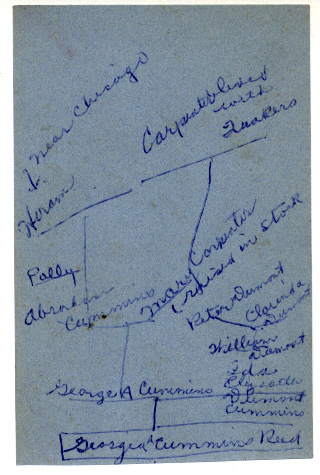 near Chicago
&
Hiram
Carpenter lived
with
Quakers
Polly
Abraham
Cummins
Mary Carpenter
in stock
Peter Dumont
Clarinda
Dumont
William
Dumont
Ida
Dumont
Cummins
George A Cummins
Georgia Cummins Reed